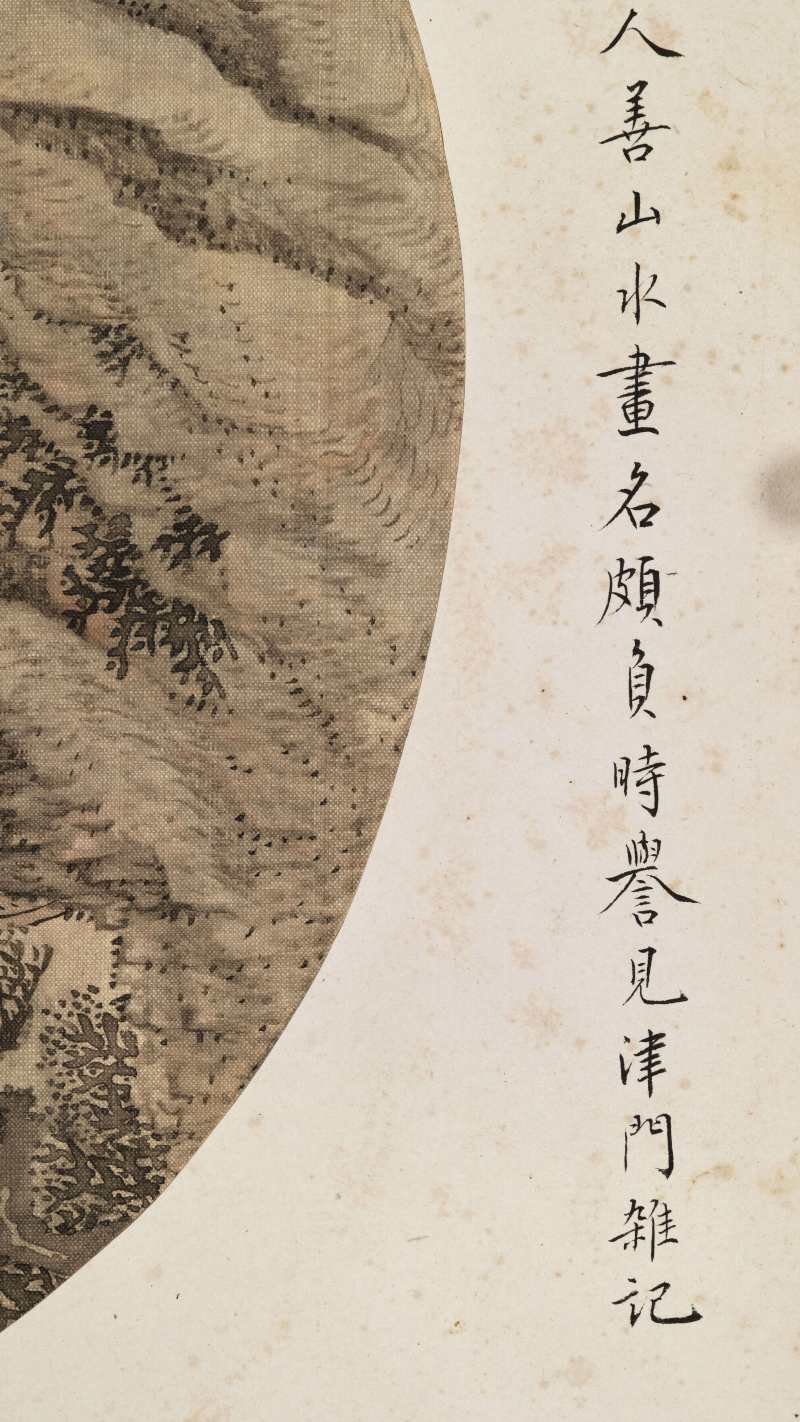 人善山水畫名頗負時譽見津門雜記